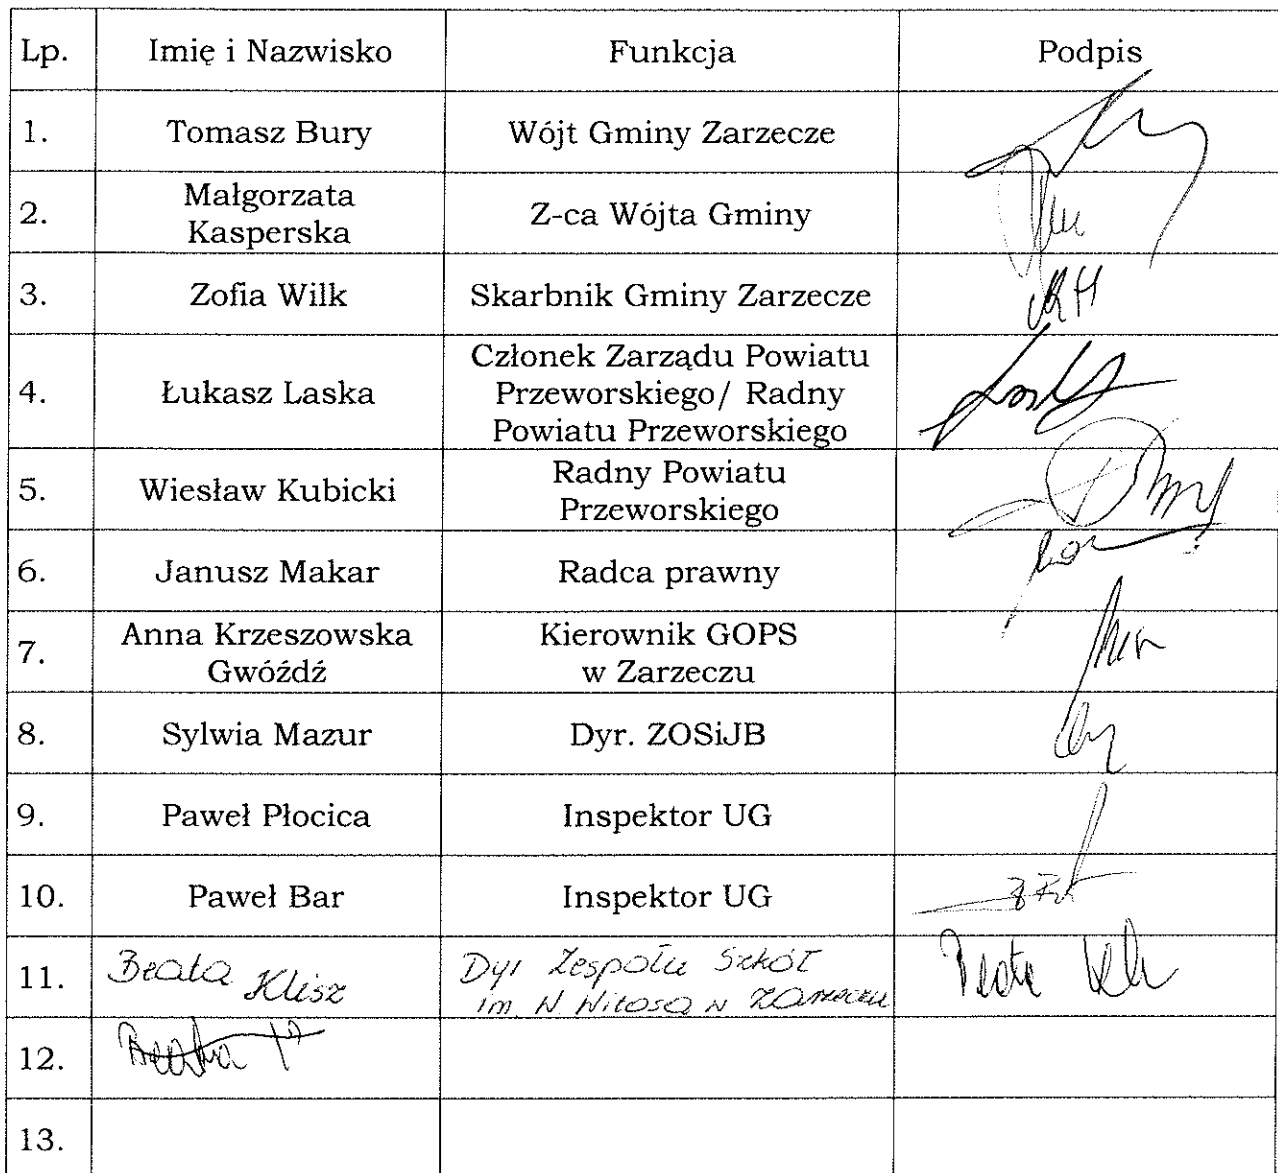 Lp. Imię i Nazwisko Funkcja Podpis
1. Tomasz Bury Wójt Gminy Zarzecze
2. Małgorzata
Kasperska Z-ca Wójta Gminy
3. Zofia Wilk Skarbnik Gminy Zarzecze
4. Łukasz Laska Członek Zarządu Powiatu
Przeworskiego/ Radny
Powiatu Przeworskiego
5. Wiesław Kubicki Radny Powiatu
Przeworskiego
6. Janusz Makar Radca prawny
7. Anna Krzeszowska
Gwóźdź Kierownik GOPS
w Zarzeczu
8. Sylwia Mazur Dyr. ZOSiJB
9. Paweł Płocica Inspektor UG
10. Paweł Bar Inspektor UG
11. Beata Klisz Dyr Zespołu Szkół
im W. Witosa w Zarzeczu Beata
12.
13.